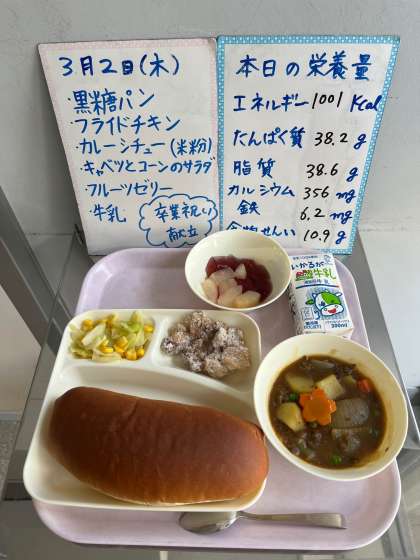 3月2日(木)
・黒糖パン
・フライドチキン
・カレーシチュー(米粉)
・キャベツとコーンのサラダ
・フルーツゼリー
・牛乳
卒業祝い
献立
本日の栄養量
エネルギー 1001 Kcal
たんぱく質 38.2 g
脂質 38.6 g
カルシウム 356 mg
鉄 6.2 mg
食物せんい 10.9 g
いかるが
牛乳